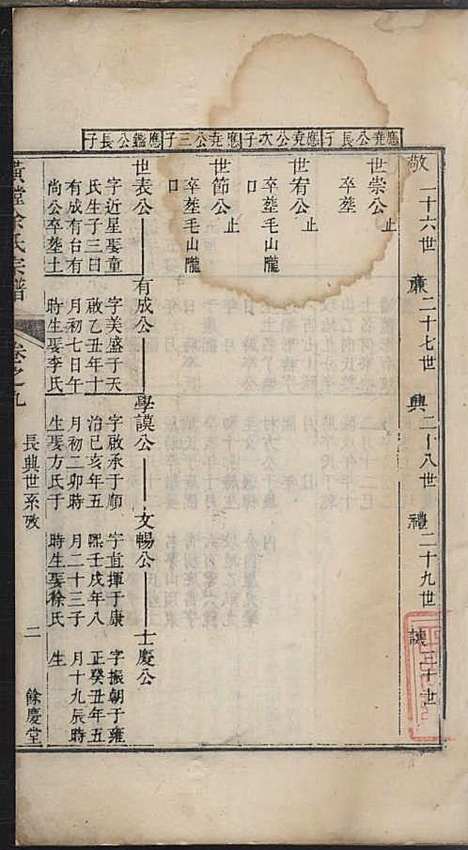 敬 二十六世 廉 二十七世 興 二十八世 禮 二十九世 讓 三十世
應堯公長子
世崇公 止
卒塟
應堯公次子
世宥公 止
卒塟毛山隴
口
應堯公三子
世節公 止
卒塟毛山隴
口
應鑑公長子
世表公 有成公 學謨公 文暢公 士慶公
字近星娶童
氏生子三曰
有成有台有
尚公卒塟土
字美盛于天
啟乙丑年十
月初七日午
時生娶李氏
字啟承于順
治己亥年五
月初二卯時
生娶方氏于
字直揮于康
熙壬戌年八
月二十三子
時生娶徐氏
字振朝于雍
正癸丑年五
月十九辰時
生
黃塘徐氏宗譜 卷之九
長典世系攷 二 餘慶堂